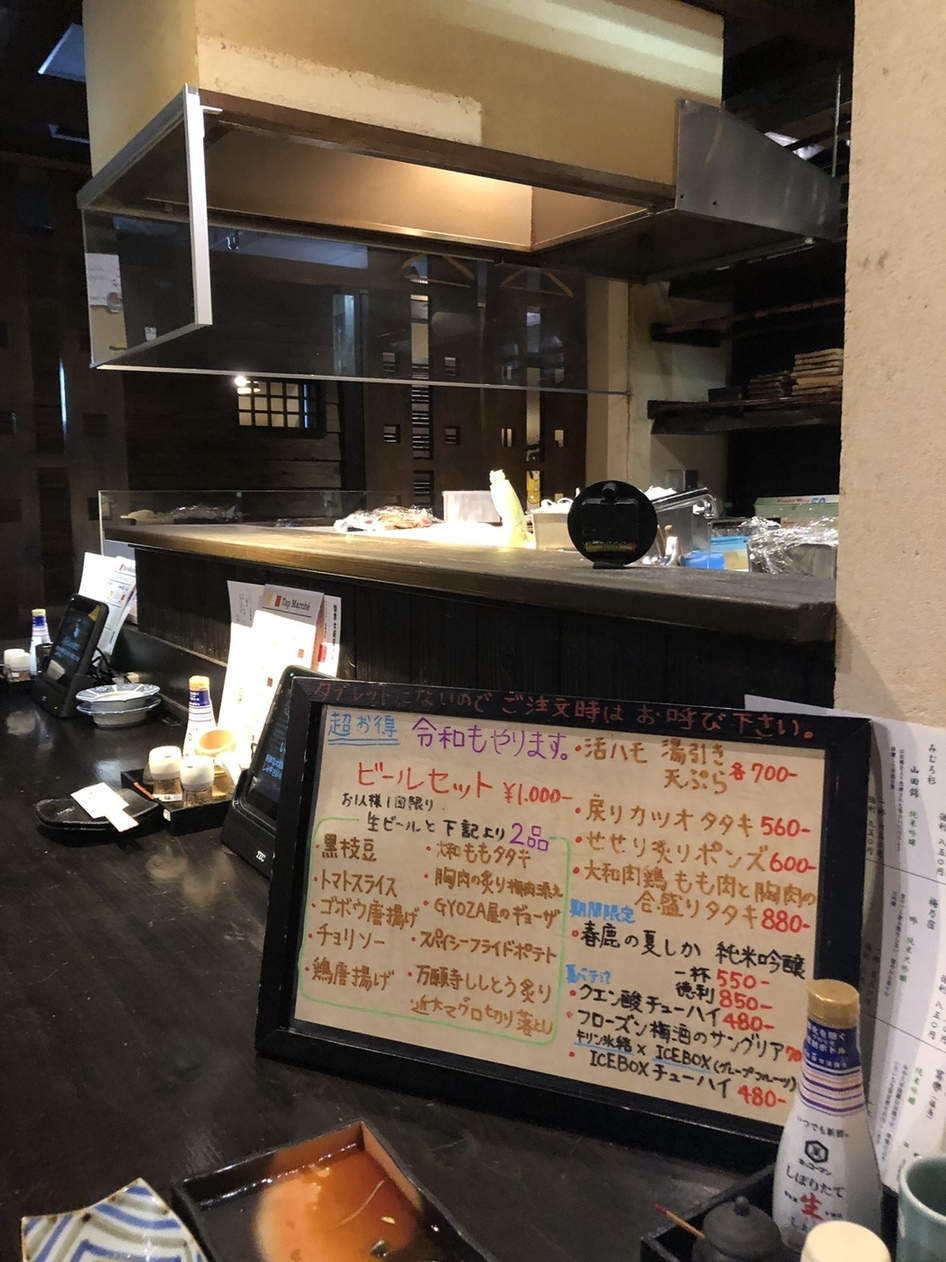 Tap Marché
タブレットにないので ご注文時は お呼び下さい。
超お得 令和もやります。
ビールセット ¥1.000-
お1人様1回限り
生ビールと 下記より2品
・黒枝豆
・トマトスライス
・ゴボウ唐揚げ
・チョリソー
・鶏唐揚げ
・大和ももタタキ
・胸肉の炙り梅肉添え
・GYOZA屋のギョーザ
・スパイシーフライドポテト
・万願寺ししとう炙り
近大マグロ切り落とし
・活ハモ 湯引き
天ぷら 各700-
・戻りカツオ タタキ 560-
・せせり炙りポンズ 600-
・大和肉鶏 もも肉と胸肉の
合盛りタタキ 880-
期間限定
・春鹿の夏しか 純米吟醸
一杯 550-
徳利 850-
夏バテに?
・クエン酸チューハイ 480-
・フローズン梅酒のサングリア 70
キリン氷結 × ICEBOX (グレープフルーツ)
・ICEBOXチューハイ 480-
みむろ杉
山田錦 純米吟醸
梅乃宿
純米大吟醸
いつでも新鮮
キッコーマン
しぼりたて
生